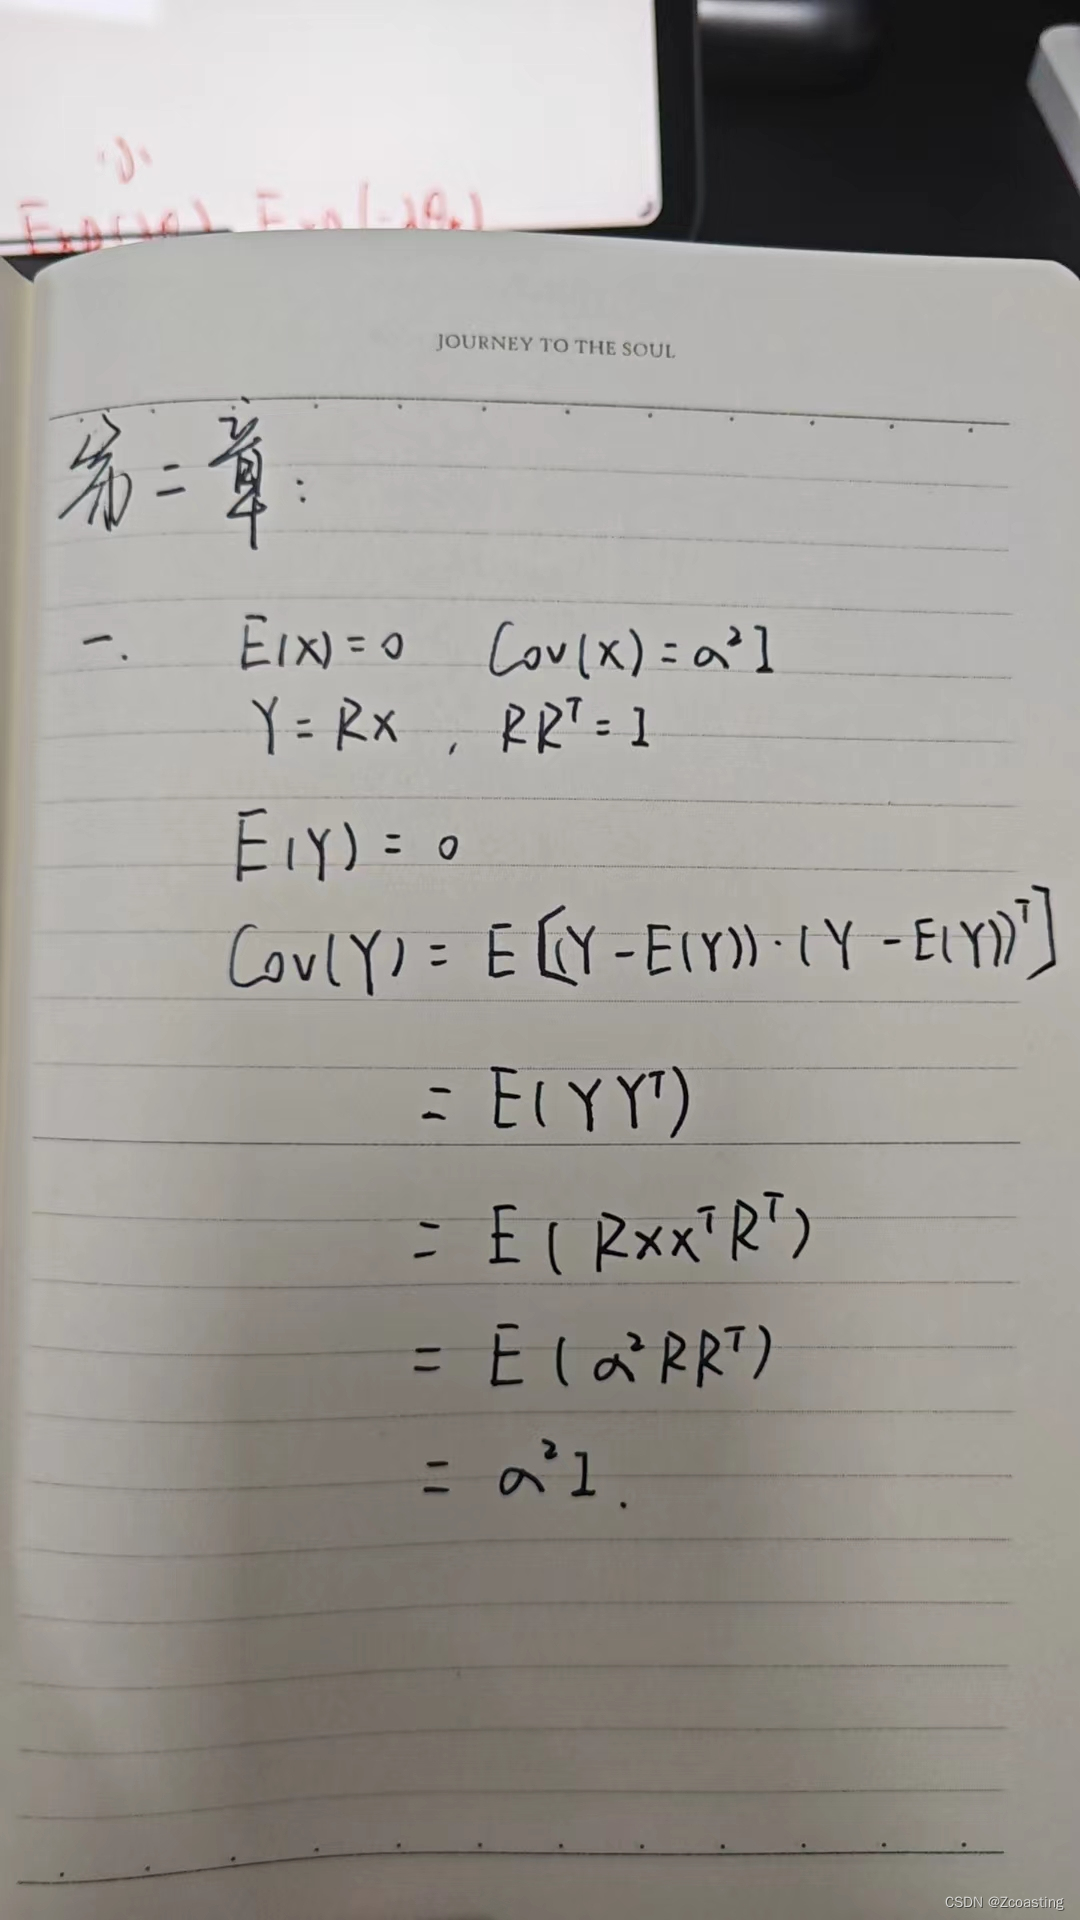 JOURNEY TO THE SOUL
第二章:
一. E(X)=0 Cov(X)=a²I
Y=RX , RRᵀ=I
E(Y)=0
Cov(Y)=E[(Y-E(Y))·(Y-E(Y))ᵀ]
=E(YYᵀ)
=E(RXXᵀRᵀ)
=E(a²RRᵀ)
=a²I.
CSDN @Zcoasting